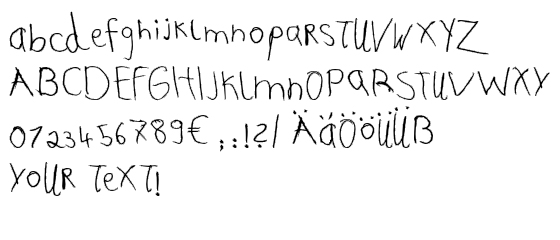 abcdefghijklmnopqRSTUVWXYZ
ABCDEFGHIJKlmnOPQRSTUVWXY
0123456789€ ; . : ! ? / ÄäÖöÜÜß
YOUR TEXT!